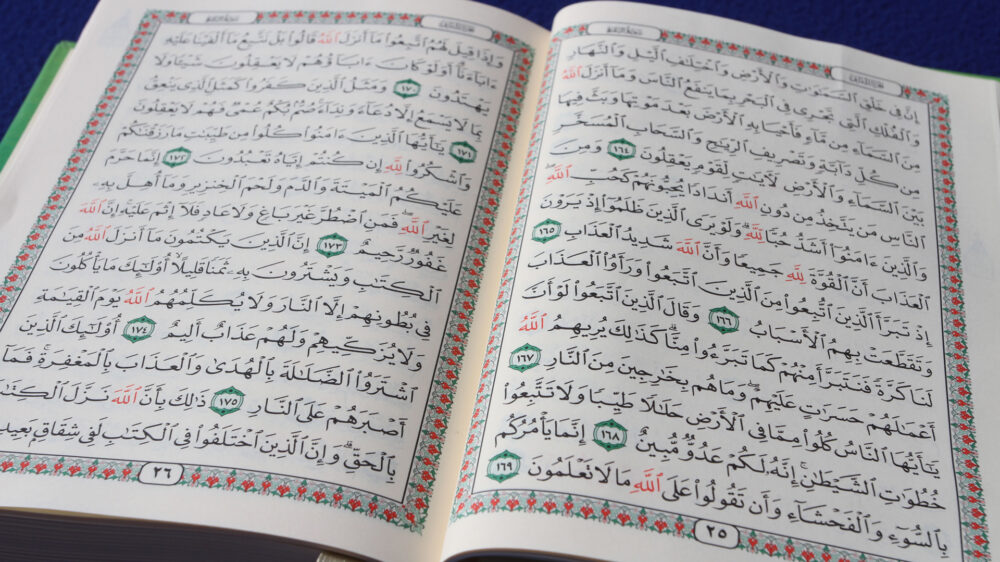 إِنَّ فِى خَلْقِ ٱلسَّمَٰوَٰتِ وَٱلْأَرْضِ وَٱخْتِلَٰفِ ٱلَّيْلِ وَٱلنَّهَارِ
وَٱلْفُلْكِ ٱلَّتِى تَجْرِى فِى ٱلْبَحْرِ بِمَا يَنفَعُ ٱلنَّاسَ وَمَآ أَنزَلَ ٱللَّهُ
مِنَ ٱلسَّمَآءِ مِن مَّآءٍ فَأَحْيَا بِهِ ٱلْأَرْضَ بَعْدَ مَوْتِهَا وَبَثَّ فِيهَا
مِن كُلِّ دَآبَّةٍ وَتَصْرِيفِ ٱلرِّيَٰحِ وَٱلسَّحَابِ ٱلْمُسَخَّرِ
بَيْنَ ٱلسَّمَآءِ وَٱلْأَرْضِ لَءَايَٰتٍ لِّقَوْمٍ يَعْقِلُونَ ١٦٤ وَمِنَ
ٱلنَّاسِ مَن يَتَّخِذُ مِن دُونِ ٱللَّهِ أَندَادًا يُحِبُّونَهُمْ كَحُبِّ ٱللَّهِۖ
وَٱلَّذِينَ ءَامَنُوٓا۟ أَشَدُّ حُبًّا لِّلَّهِۗ وَلَوْ يَرَى ٱلَّذِينَ ظَلَمُوٓا۟ إِذْ يَرَوْنَ
ٱلْعَذَابَ أَنَّ ٱلْقُوَّةَ لِلَّهِ جَمِيعًا وَأَنَّ ٱللَّهَ شَدِيدُ ٱلْعَذَابِ ١٦٥
إِذْ تَبَرَّأَ ٱلَّذِينَ ٱتُّبِعُوا۟ مِنَ ٱلَّذِينَ ٱتَّبَعُوا۟ وَرَأَوُا۟ ٱلْعَذَابَ
وَتَقَطَّعَتْ بِهِمُ ٱلْأَسْبَابُ ١٦٦ وَقَالَ ٱلَّذِينَ ٱتَّبَعُوا۟ لَوْ أَنَّ
لَنَا كَرَّةً فَنَتَبَرَّأَ مِنْهُمْ كَمَا تَبَرَّءُوا۟ مِنَّاۗ كَذَٰلِكَ يُرِيهِمُ ٱللَّهُ
أَعْمَٰلَهُمْ حَسَرَٰتٍ عَلَيْهِمْۖ وَمَا هُم بِخَٰرِجِينَ مِنَ ٱلنَّارِ ١٦٧
يَٰٓأَيُّهَا ٱلنَّاسُ كُلُوا۟ مِمَّا فِى ٱلْأَرْضِ حَلَٰلًا طَيِّبًا وَلَا تَتَّبِعُوا۟
خُطُوَٰتِ ٱلشَّيْطَٰنِۚ إِنَّهُۥ لَكُمْ عَدُوٌّ مُّبِينٌ ١٦٨ إِنَّمَا يَأْمُرُكُم
بِٱلسُّوٓءِ وَٱلْفَحْشَآءِ وَأَن تَقُولُوا۟ عَلَى ٱللَّهِ مَا لَا تَعْلَمُونَ ١٦٩
٢٥
وَإِذَا قِيلَ لَهُمُ ٱتَّبِعُوا۟ مَآ أَنزَلَ ٱللَّهُ قَالُوا۟ بَلْ نَتَّبِعُ مَآ أَلْفَيْنَا عَلَيْهِ
ءَابَآءَنَآۗ أَوَلَوْ كَانَ ءَابَآؤُهُمْ لَا يَعْقِلُونَ شَيْـًٔا وَلَا
يَهْتَدُونَ ١٧٠ وَمَثَلُ ٱلَّذِينَ كَفَرُوا۟ كَمَثَلِ ٱلَّذِى يَنْعِقُ
بِمَا لَا يَسْمَعُ إِلَّا دُعَآءً وَنِدَآءًۚ صُمٌّۢ بُكْمٌ عُمْىٌ فَهُمْ لَا يَعْقِلُونَ
١٧١ يَٰٓأَيُّهَا ٱلَّذِينَ ءَامَنُوا۟ كُلُوا۟ مِن طَيِّبَٰتِ مَا رَزَقْنَٰكُمْ
وَٱشْكُرُوا۟ لِلَّهِ إِن كُنتُمْ إِيَّاهُ تَعْبُدُونَ ١٧٢ إِنَّمَا حَرَّمَ
عَلَيْكُمُ ٱلْمَيْتَةَ وَٱلدَّمَ وَلَحْمَ ٱلْخِنزِيرِ وَمَآ أُهِلَّ بِهِۦ
لِغَيْرِ ٱللَّهِۖ فَمَنِ ٱضْطُرَّ غَيْرَ بَاغٍ وَلَا عَادٍ فَلَآ إِثْمَ عَلَيْهِۚ إِنَّ ٱللَّهَ
غَفُورٌ رَّحِيمٌ ١٧٣ إِنَّ ٱلَّذِينَ يَكْتُمُونَ مَآ أَنزَلَ ٱللَّهُ مِنَ
ٱلْكِتَٰبِ وَيَشْتَرُونَ بِهِۦ ثَمَنًا قَلِيلًاۙ أُو۟لَٰٓئِكَ مَا يَأْكُلُونَ
فِى بُطُونِهِمْ إِلَّا ٱلنَّارَ وَلَا يُكَلِّمُهُمُ ٱللَّهُ يَوْمَ ٱلْقِيَٰمَةِ
وَلَا يُزَكِّيهِمْ وَلَهُمْ عَذَابٌ أَلِيمٌ ١٧٤ أُو۟لَٰٓئِكَ ٱلَّذِينَ
ٱشْتَرَوُا۟ ٱلضَّلَٰلَةَ بِٱلْهُدَىٰ وَٱلْعَذَابَ بِٱلْمَغْفِرَةِۚ فَمَآ
أَصْبَرَهُمْ عَلَى ٱلنَّارِ ١٧٥ ذَٰلِكَ بِأَنَّ ٱللَّهَ نَزَّلَ ٱلْكِتَٰبَ
بِٱلْحَقِّۗ وَإِنَّ ٱلَّذِينَ ٱخْتَلَفُوا۟ فِى ٱلْكِتَٰبِ لَفِى شِقَاقٍۭ بَعِيدٍ
٢٦